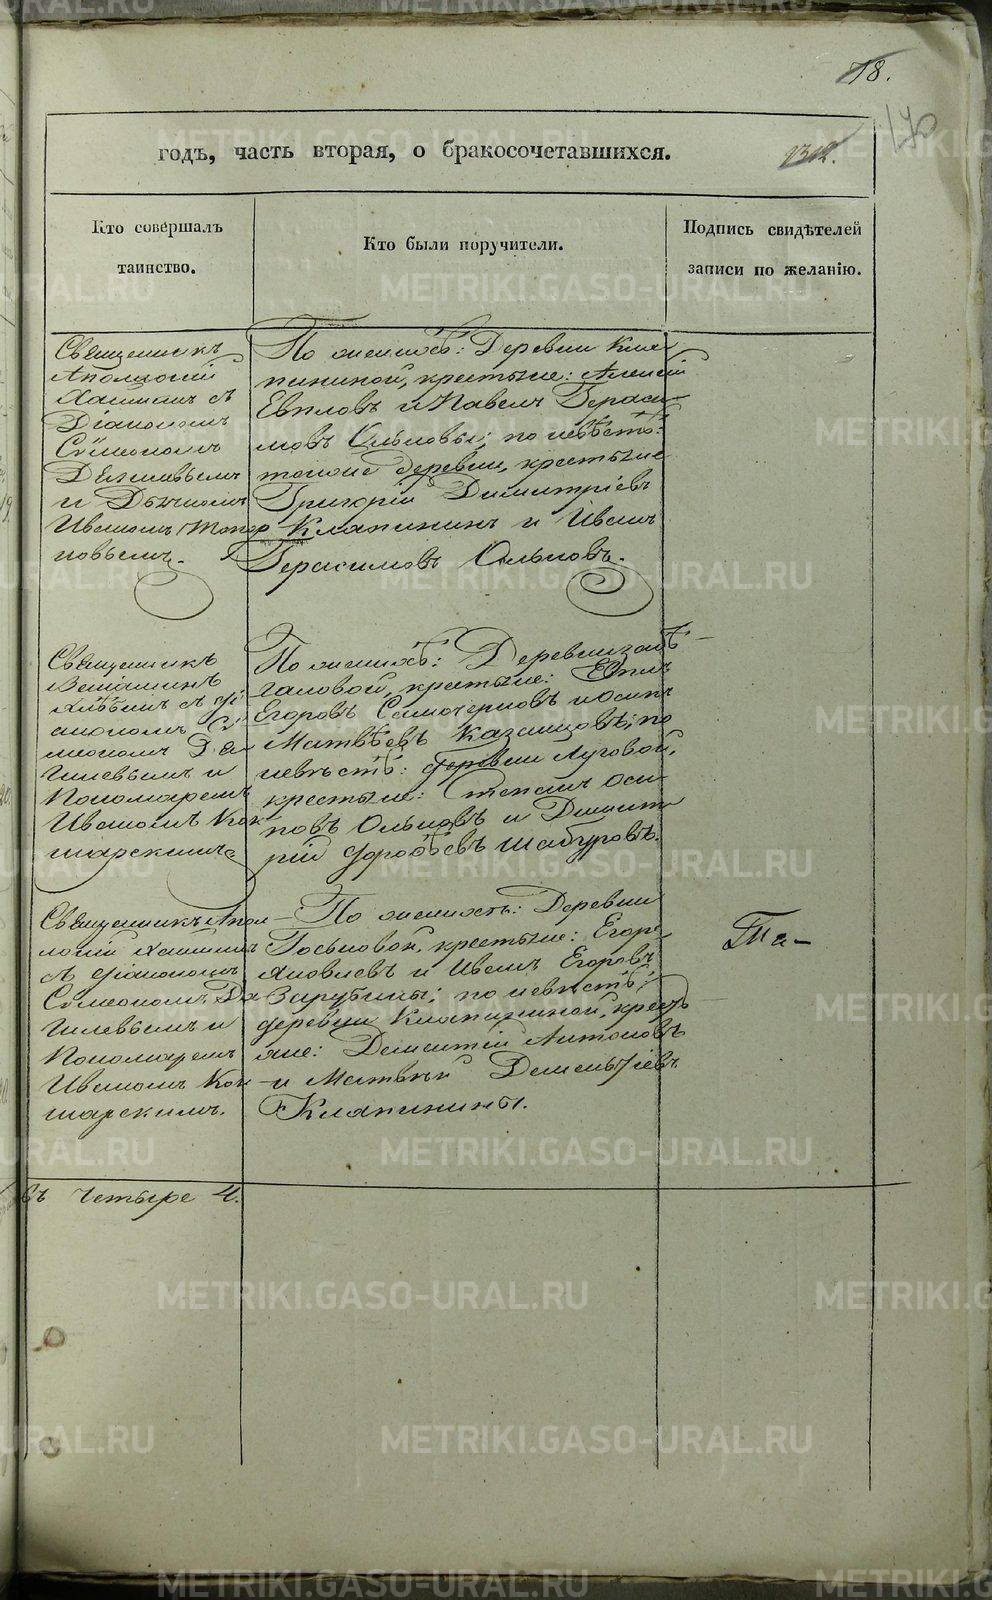 78.
170
1312.
годъ, часть вторая, о бракосочетавшихся.
Кто совершалъ
таинство.
Кто были поручители.
Подпись свидѣтелей
записи по желанію.
Священникъ
Аполлоній
съ
Діакономъ
Сѵмеономъ
Дягилевымъ
и Дьячкомъ
Иваномъ Топор
ковымъ.
По женихѣ: Деревни Кля
пининой, крестьяне: Алексѣй
Евпловъ и Павелъ Гераси
мовъ Ольковы; по невѣстѣ:
тойже деревни, крестьяне
Григорій Димитріевъ
Кляпининъ и Иванъ
Герасимовъ Ольковъ.
Священникъ
Веніаминъ
съ ді
акономъ Сѵ
меономъ Дя
гилевымъ и
Пономаремъ
Иваномъ Кок
шарскимъ.
По женихѣ: Деревни
галовой, крестьяне:
Егоровъ и Осипъ
Матвѣевъ Казанцовъ; по
невѣстѣ: деревни Луговой,
крестьяне: Степанъ Оси
повъ Ольковъ и Димит
рій Шабуровъ.
Священникъ Апол
лоній
съ діакономъ
Сѵмеономъ Дя
гилевымъ и
Пономаремъ
Иваномъ Кок
шарскимъ.
По женихѣ: Деревни
крестьяне: Егоръ
Яковлевъ и Иванъ Егоровъ
Зарубины; по невѣстѣ;
деревни Кляпининой, кресть
яне: Дементій Антоновъ
и Матвѣй Дементіевъ
Кляпинины.
въ Четыре 4.